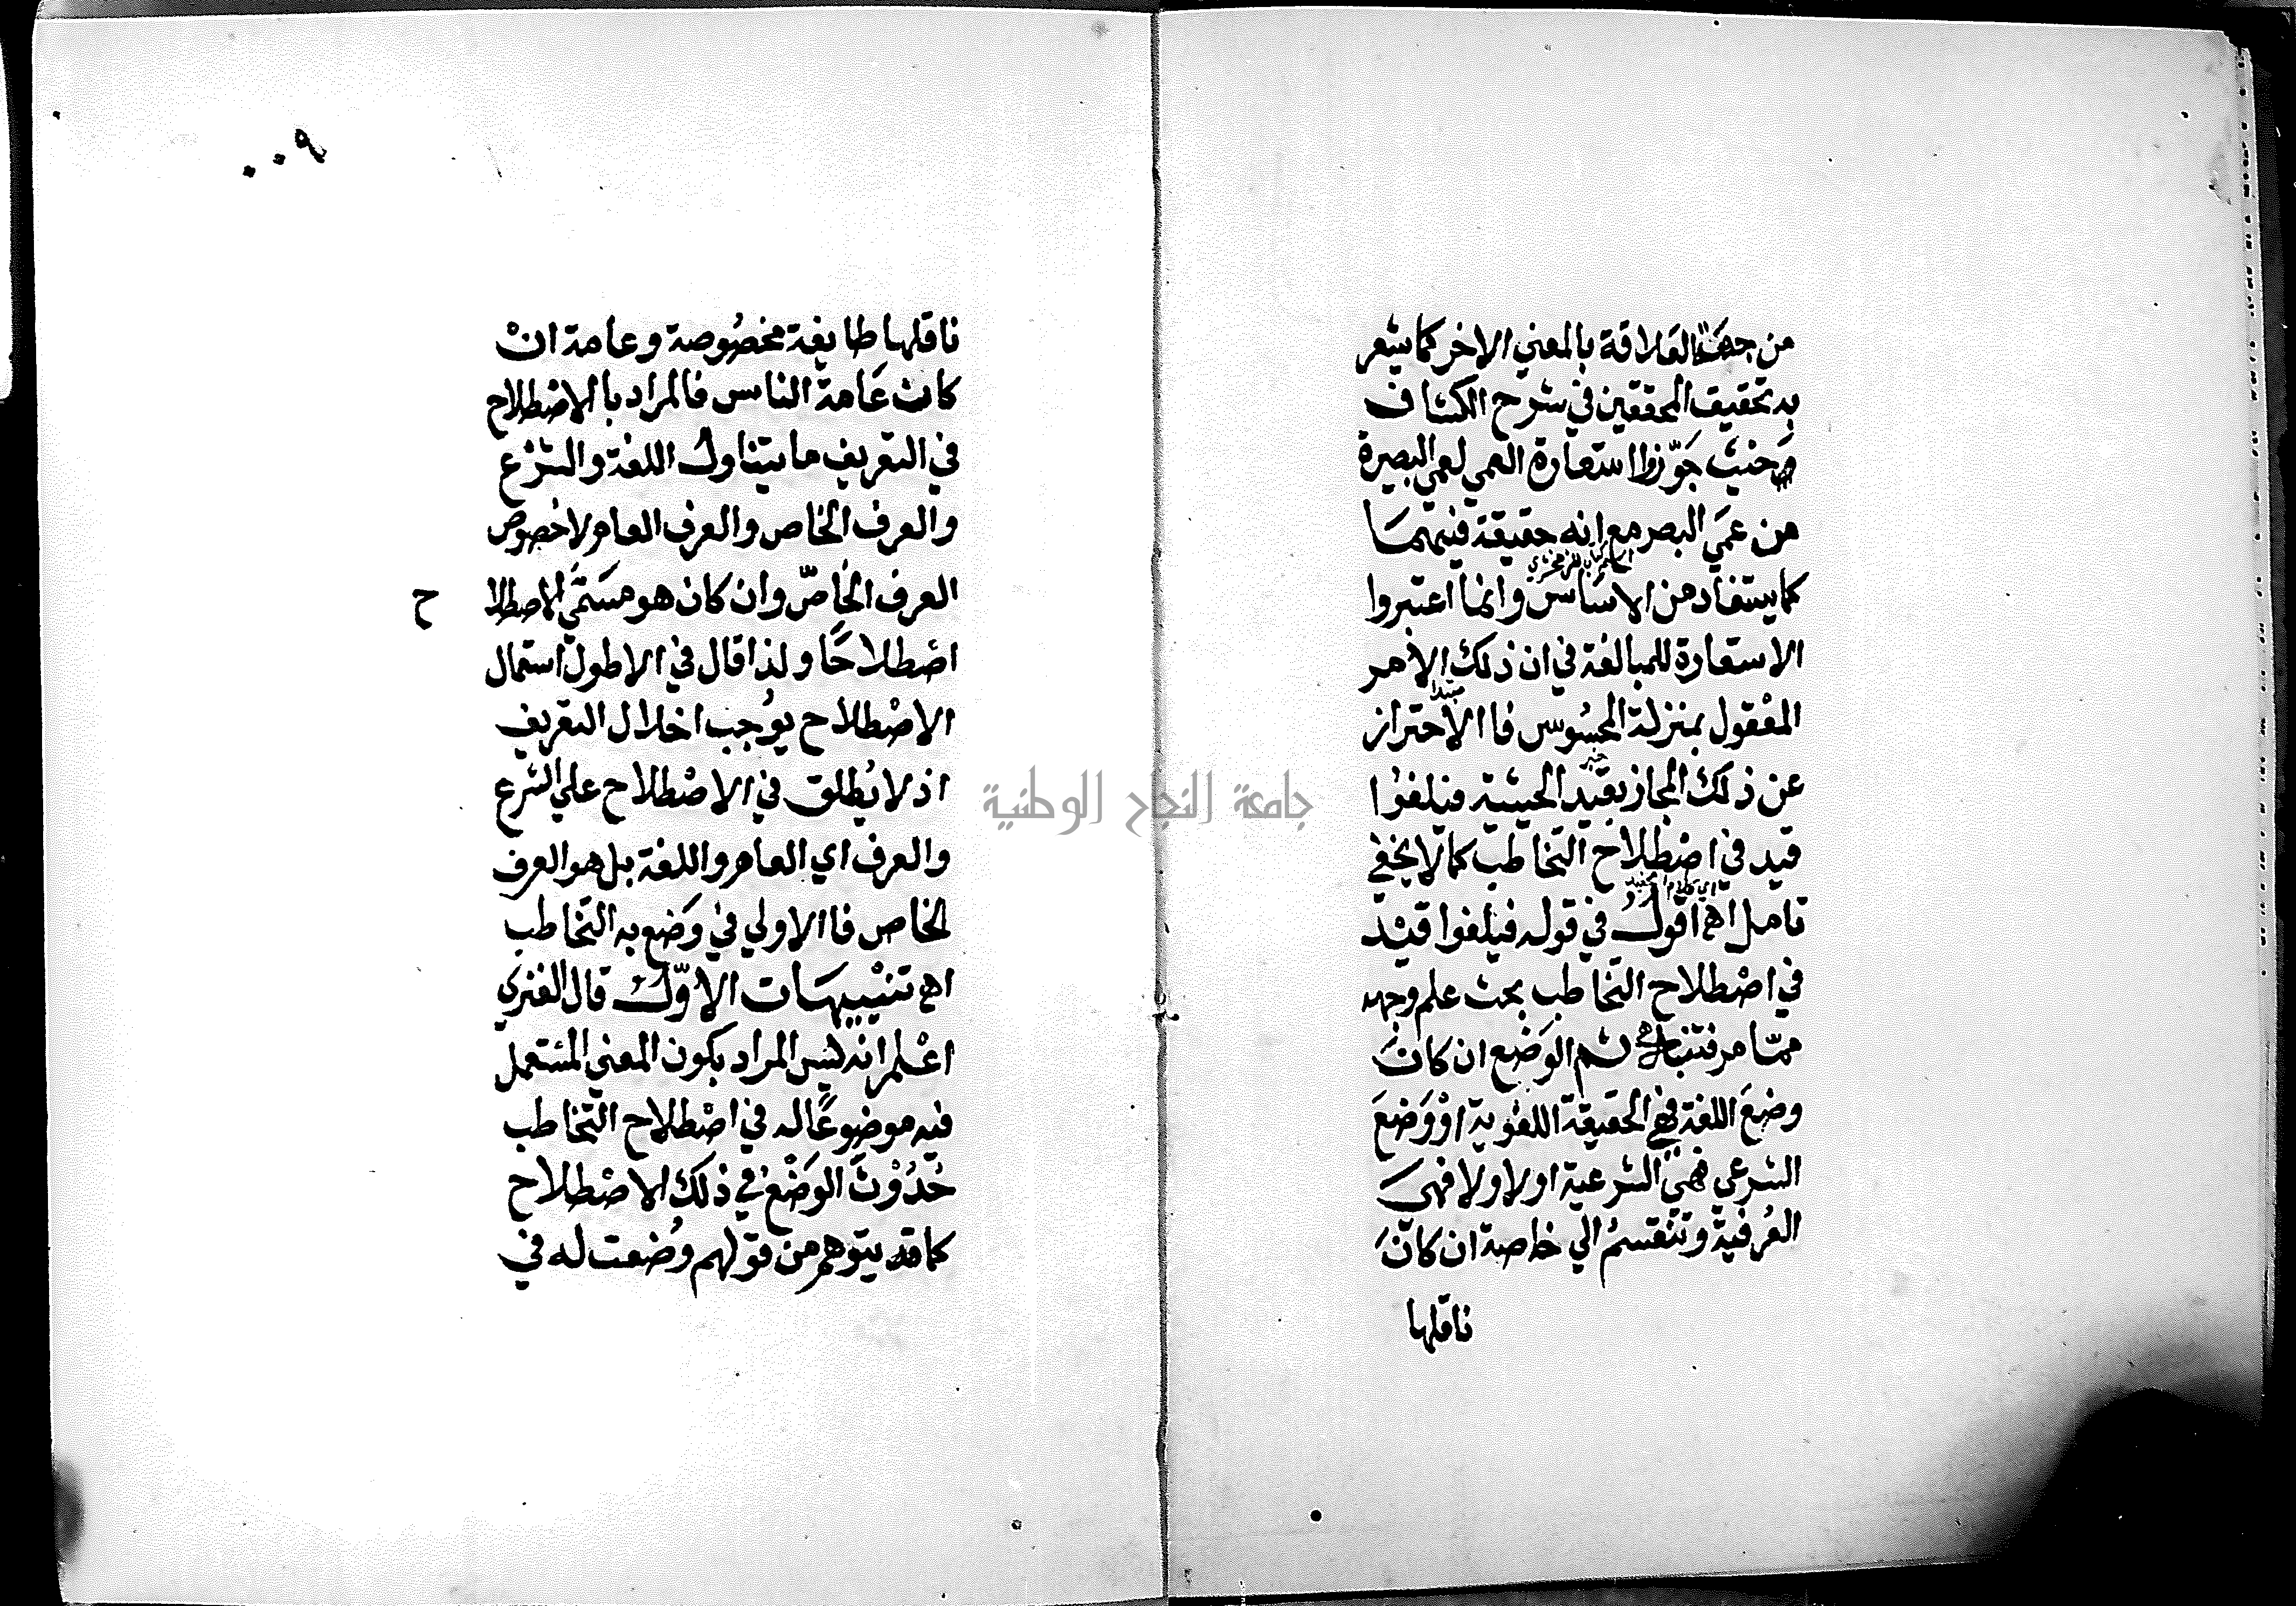 من جهة العلاقة بالمعني الاخر كما يشعر
به تحقيق المحققين في شرح الكشاف
وحيث جوزوا استعارة العمي لعمي البصيرة
من عمَي البصر مع انه حقيقة فيهمَا
كما يستفاد من الاسَاس وانما اعتبروا
الاستعارة للمبالغة في ان ذلك الامر
مبتدا
المعْقول بمنزلة المحسُوس فاالاحتراز
خبر
عن ذلك المجاز بقيد الحيثية فيلغوا
قيد في اصْطلاح التخاطب كما لا يخفي
تامل اه اقول في قوله فيلغوا قيْد
في اصْطلاح التخاطب بحث علم وجهه
ممّا مر فتنبه اه ثم الوَضع ان كانَ
وضعَ اللغة فهي الحقيقة اللغوية اوْ وَضعَ
الشرعي فهي الشرعية اولا ولا فهي
العُرفية وتنقسمُ الي خاصة ان كانَ
ناقلها
٠٠٩
ناقلها طايفة مخصُوصة وعامة انْ
كانت عَامة الناس فالمراد باالاصْطلاح
في التعريف ما يتناول اللغة والشرْع
والعرف الخاص والعرف العام لا خصوص
العرف الخاصّ وان كان هو مسَمَّي الاصطلا ح
اصْطلاحًا ولذا قال في الاطول استعمال
الاصْطلاح يوُجب اخلال التعريف
اذ لا يُطلق في الاصْطلاح علي الشرع
والعرف اي العام واللغة بل هو العرف
الخاص فاالاولي في وَضع به التخاطب
اه تنْبيهَات الاوّل قال الفنري
اعْلم انه ليس المراد بكون المعني المسْتعمل
فيه موضوعًا له في اصْطلاح التّخاطب
حُدُوْثَ الوَضْعُ في ذلك الاصْطلاح
كما قد يتوهم من قولهم وُضعت له في
جامعة النجاح الوطنية